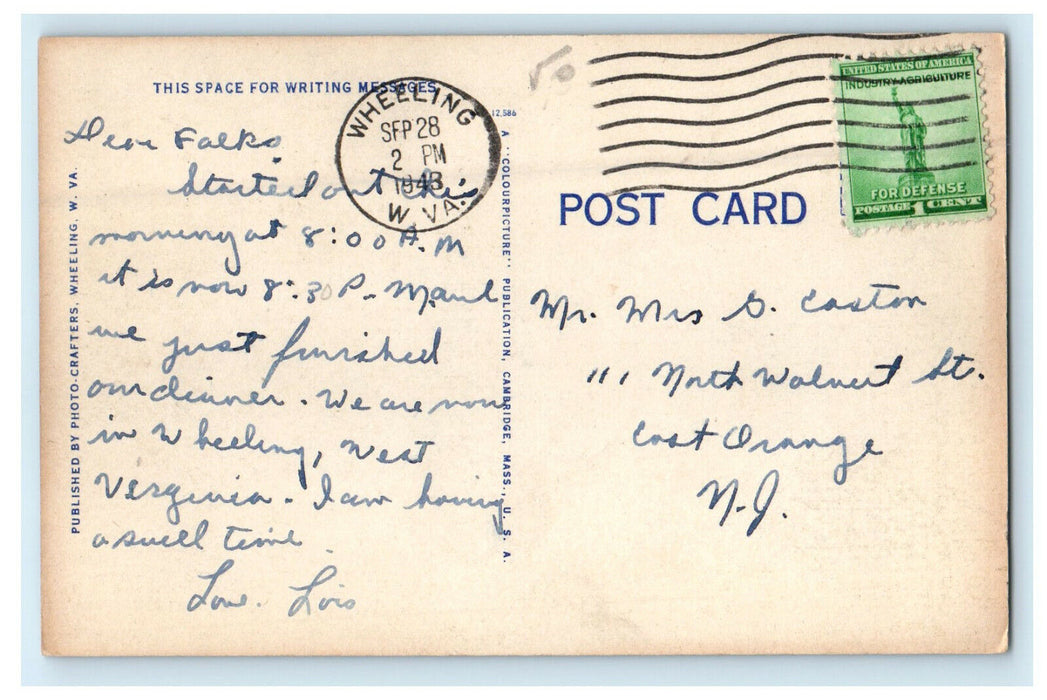 THIS SPACE FOR WRITING MESSAGES
WHEELING
SEP 28
2 PM
1943
W. VA.
UNITED STATES OF AMERICA
INDUSTRY·AGRICULTURE
FOR DEFENSE
POSTAGE 1 CENT
12,586
PUBLISHED BY PHOTO-CRAFTERS, WHEELING, W. VA.
A "COLOURPICTURE" PUBLICATION, CAMBRIDGE, MASS., U. S. A.
Dear Folks
Started out this
morning at 8:00 A.M
it is now 8:30 P. M. and
we just finished
our dinner. We are now
in Wheeling, West
Verginia. I am having
a swell time.
Love. Lois
POST CARD
Mr. Mrs G. Easton
111 North Walnut St.
East Orange
N.J.